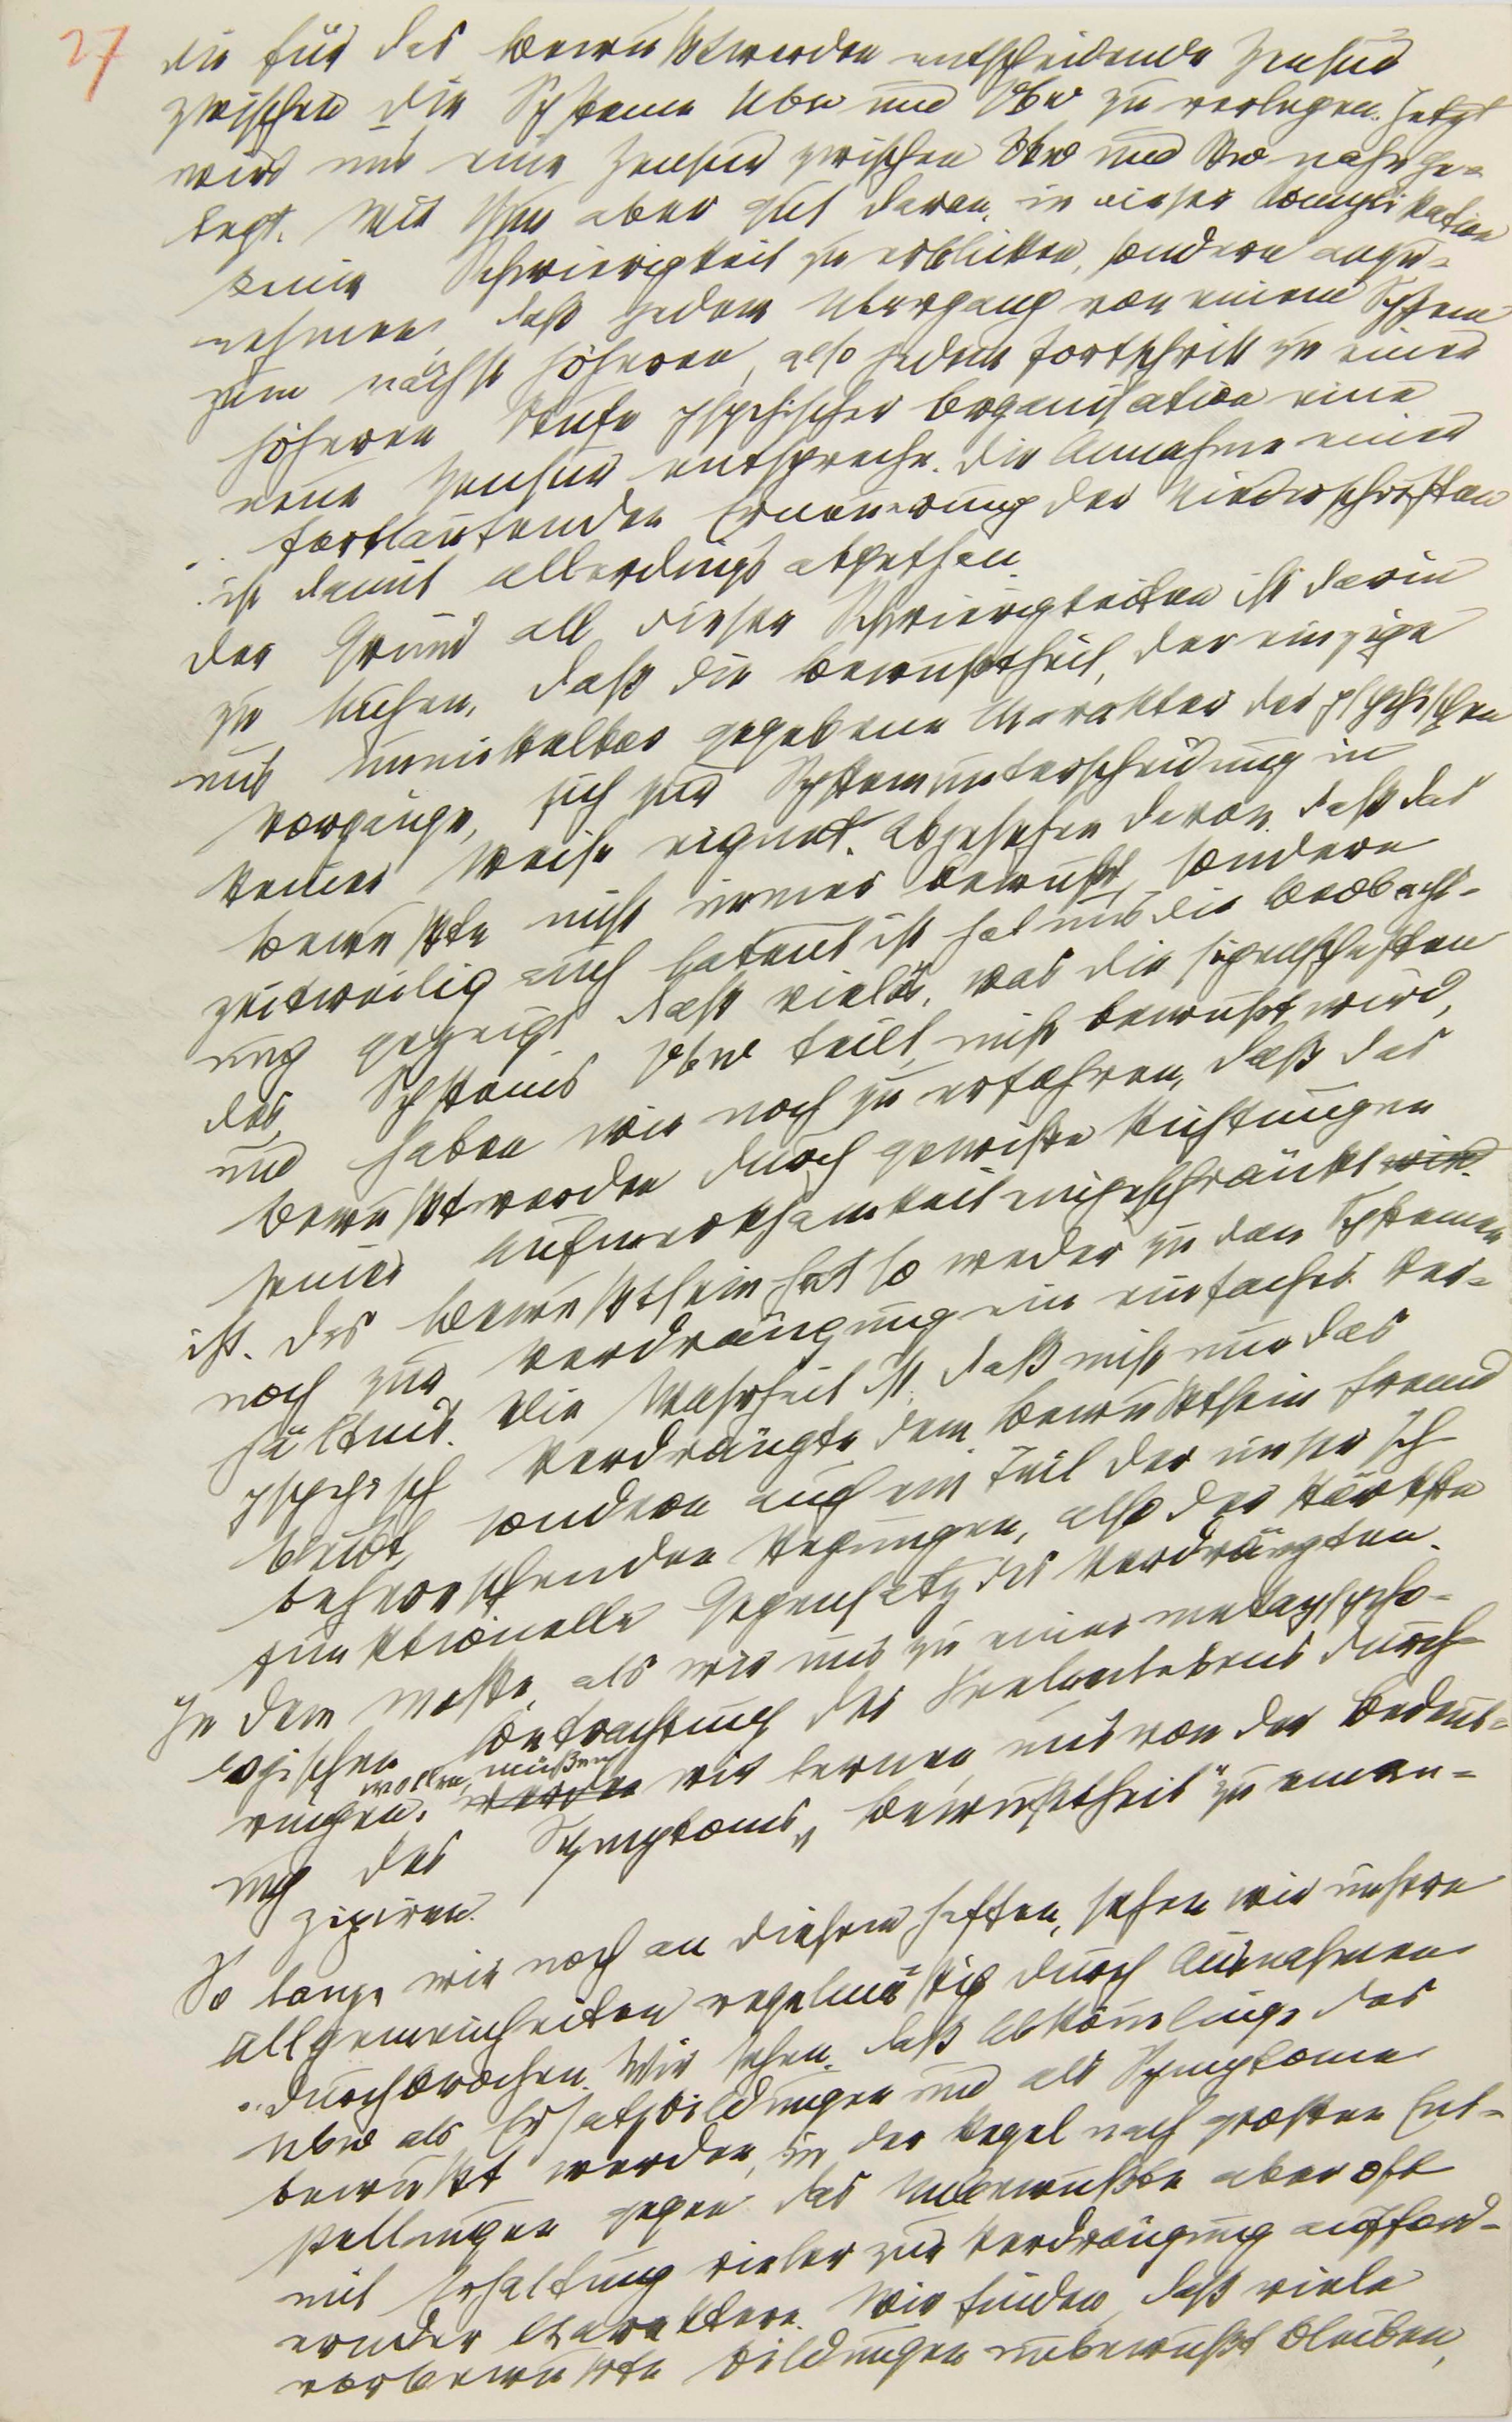 27
die für das Bewußtwerden entscheidende Zensur
zwischen die Systeme Ubw und Vbw zu verlegen. Jetzt
wird uns eine Zensur zwischen Vbw und Bw nahe ge-
legt. Wir thun aber gut daran, in dieser Complikation
keine Schwierigkeit zu erblicken, sondern anzu-
nehmen, daß jedem Übergang von einem System
zum nächst höheren, also jedem Fortschritt zu einer
höheren Stufe psychischer Organisation eine
neue Zensur entspreche. Die Annahme einer
fortlaufenden Erneuerung der Niederschriften
ist damit allerdings abgethan.
Der Grund all dieser Schwierigkeiten ist darin
zu suchen, daß die Bewußtheit, der einzige
uns unmittelbar gegebene Charakter der psychischen
Vorgänge, sich zur Systemunterscheidung in
keiner Weise eignet. Abgesehen davon, daß das
Bewußte nicht immer bewußt, sondern
zeitweilig auch latent ist, hat uns die Beobacht-
ung gezeigt, daß vieles, was die Eigenschaften
des Systems Vbw teilt, nicht bewußt wird,
und haben wir noch zu erfahren, daß das
Bewußtwerden durch gewisse Richtungen
seiner Aufmerksamkeit eingeschränkt wird
ist. Das Bewußtsein hat so weder zu den Systemen
noch zur Verdrängung ein einfaches Ver-
hältnis. Die Wahrheit ist, daß nicht nur das
psychisch Verdrängte dem Bewußtsein fremd
bleibt, sondern auch ein Teil der unser Ich
beherrschenden Regungen, also der stärkste
funktionelle Gegensatz des Verdrängten.
In dem Maße, als wir uns zu einer metapsycho-
logischen Betrachtung des Seelenlebens durch-
wollen, müßen
ringen, werden wir lernen, uns von der Bedeut-
ung des Symptoms „Bewußtheit" zu eman-
zipiren.
So lange wir noch an diesem haften, sehen wir unsere
Allgemeinheiten regelmäßig durch Ausnahmen
durchbrochen. Wir sehen, daß Abkömlinge des
Ubw als Ersatzbildungen und als Symptome
bewußt werden, in der Regel nach großen Ent-
stellungen gegen das Unbewußte aber oft
mit Erhaltung vieler zur Verdrängung aufford-
ernder Charaktere. Wir finden, daß viele
vorbewußte Bildungen unbewußt bleiben,